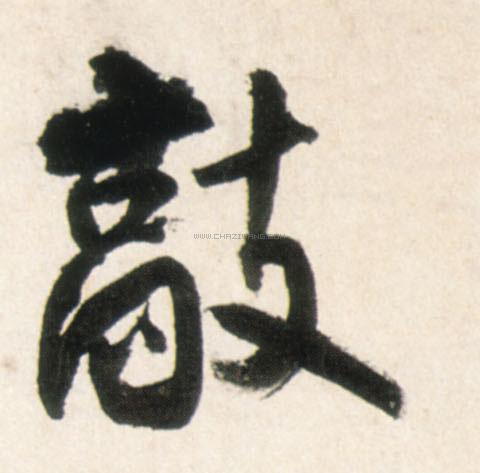 敲
WWW.CHAZIWANG.COM